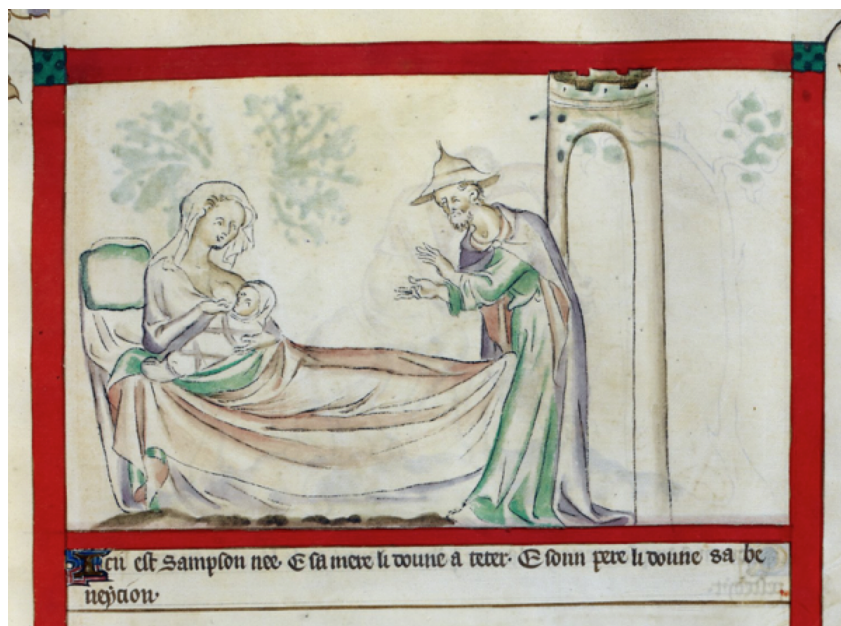 Icii est Sampson nee· E sa mere li doune a teter· E sonn pere li doune sa be
neÿcion·